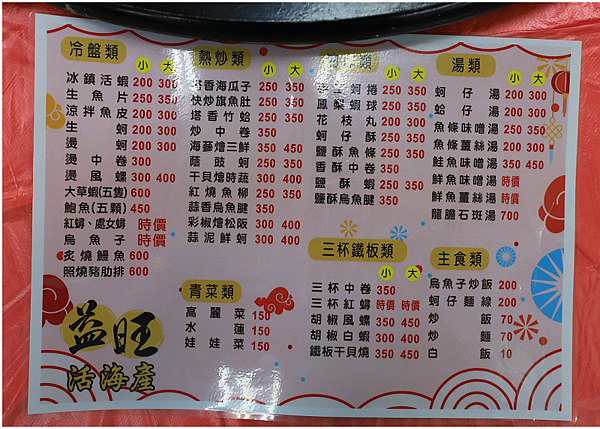 冷盤類
小 大
冰鎮活蝦 200 300
生魚片 250 350
涼拌魚皮 200 300
生蚵 200 300
燙蚵 200 300
燙中卷 300
燙風螺 300 400
大草蝦(五隻) 600
鮑魚(五顆) 450
紅蟳、處女蟳 時價
烏魚子 時價
炙燒鰻魚 600
照燒豬肋排 600
益旺
活海產
熱炒類
小 大
塔香海瓜子 250 350
快炒旗魚肚 250 350
塔香竹蛤 250 350
炒中卷 350
海蔘燴三鮮 350 450
蔭豉蚵 250 350
干貝燴時蔬 300 400
紅燒魚柳 250 350
蒜香烏魚腱 350
彩椒燴松阪 300 400
蒜泥鮮蚵 300 400
青菜類
高麗菜 150
水蓮 150
娃娃菜 150
小 大
蚵捲 250 350
鳳梨蝦球 250 350
花枝丸 200 300
蚵仔酥 250 350
鹽酥魚條 250 350
香酥中卷 350
鹽酥蝦 250 350
鹽酥烏魚腱 350
三杯鐵板類
小 大
三杯中卷 350
三杯紅蟳 時價 時價
胡椒風螺 350 450
胡椒白蝦 300 400
鐵板干貝燒 350 450
湯類
小 大
蚵仔湯 200 300
蛤仔湯 200 300
魚條味噌湯 250 350
魚條薑絲湯 200 300
鮭魚味噌湯 350 450
鮮魚味噌湯 時價
鮮魚薑絲湯 時價
龍膽石斑湯 700
主食類
烏魚子炒飯 200
蚵仔麵線 200
炒飯 70
炒麵 70
白飯 10